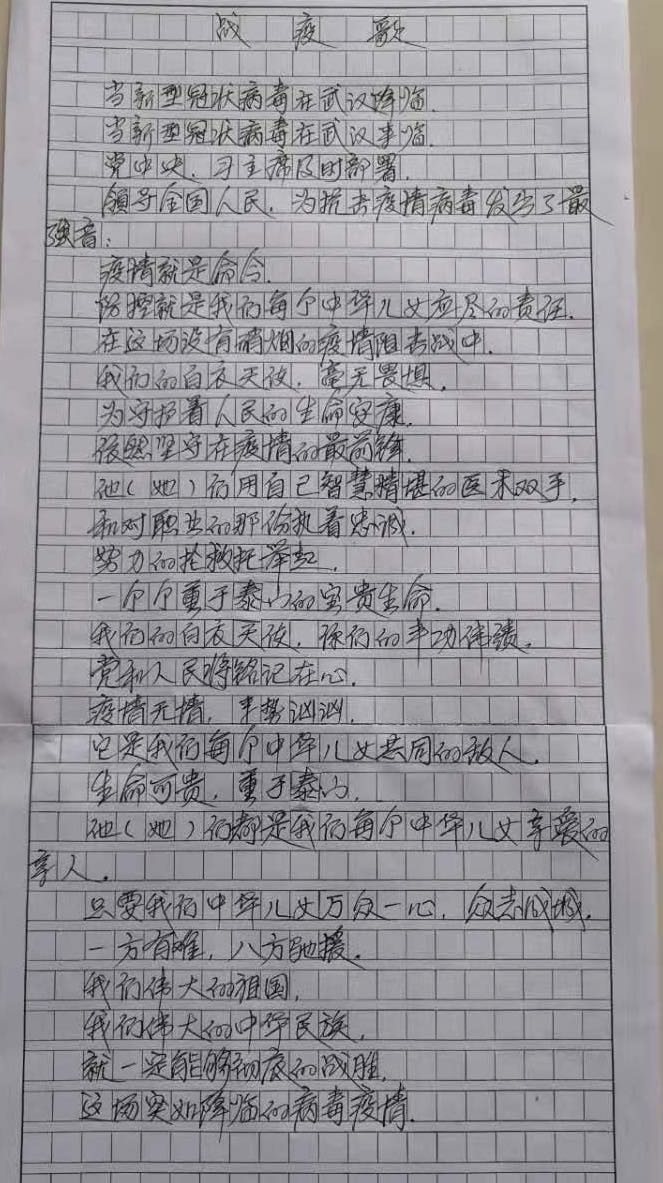 战疫歌
当新型冠状病毒在武汉降临.
当新型冠状病毒在武汉来临.
党中央.习主席及时部署.
领导全国人民.为抗击疫情病毒发出了最
强音:
疫情就是命令.
防控就是我们每个中华儿女应尽的责任.
在这场没有硝烟的疫情阻击战中.
我们的白衣天使.毫无畏惧.
为守护着人民的生命安康.
依然坚守在疫情的最前锋.
他(她)们用自己智慧精堪的医术双手.
和对职业的那份执着忠诚.
努力的抢救托举起.
一个个重于泰山的宝贵生命.
我们的白衣天使.你们的丰功伟绩.
党和人民将铭记在心.
疫情无情.来势汹汹.
它是我们每个中华儿女共同的敌人.
生命可贵.重于泰山.
他(她)们都是我们每个中华儿女亲爱的
亲人.
只要我们中华儿女万众一心.众志成城.
一方有难,八方驰援.
我们伟大的祖国.
我们伟大的中华民族.
就一定能够彻底的战胜.
这场突如降临的病毒疫情.